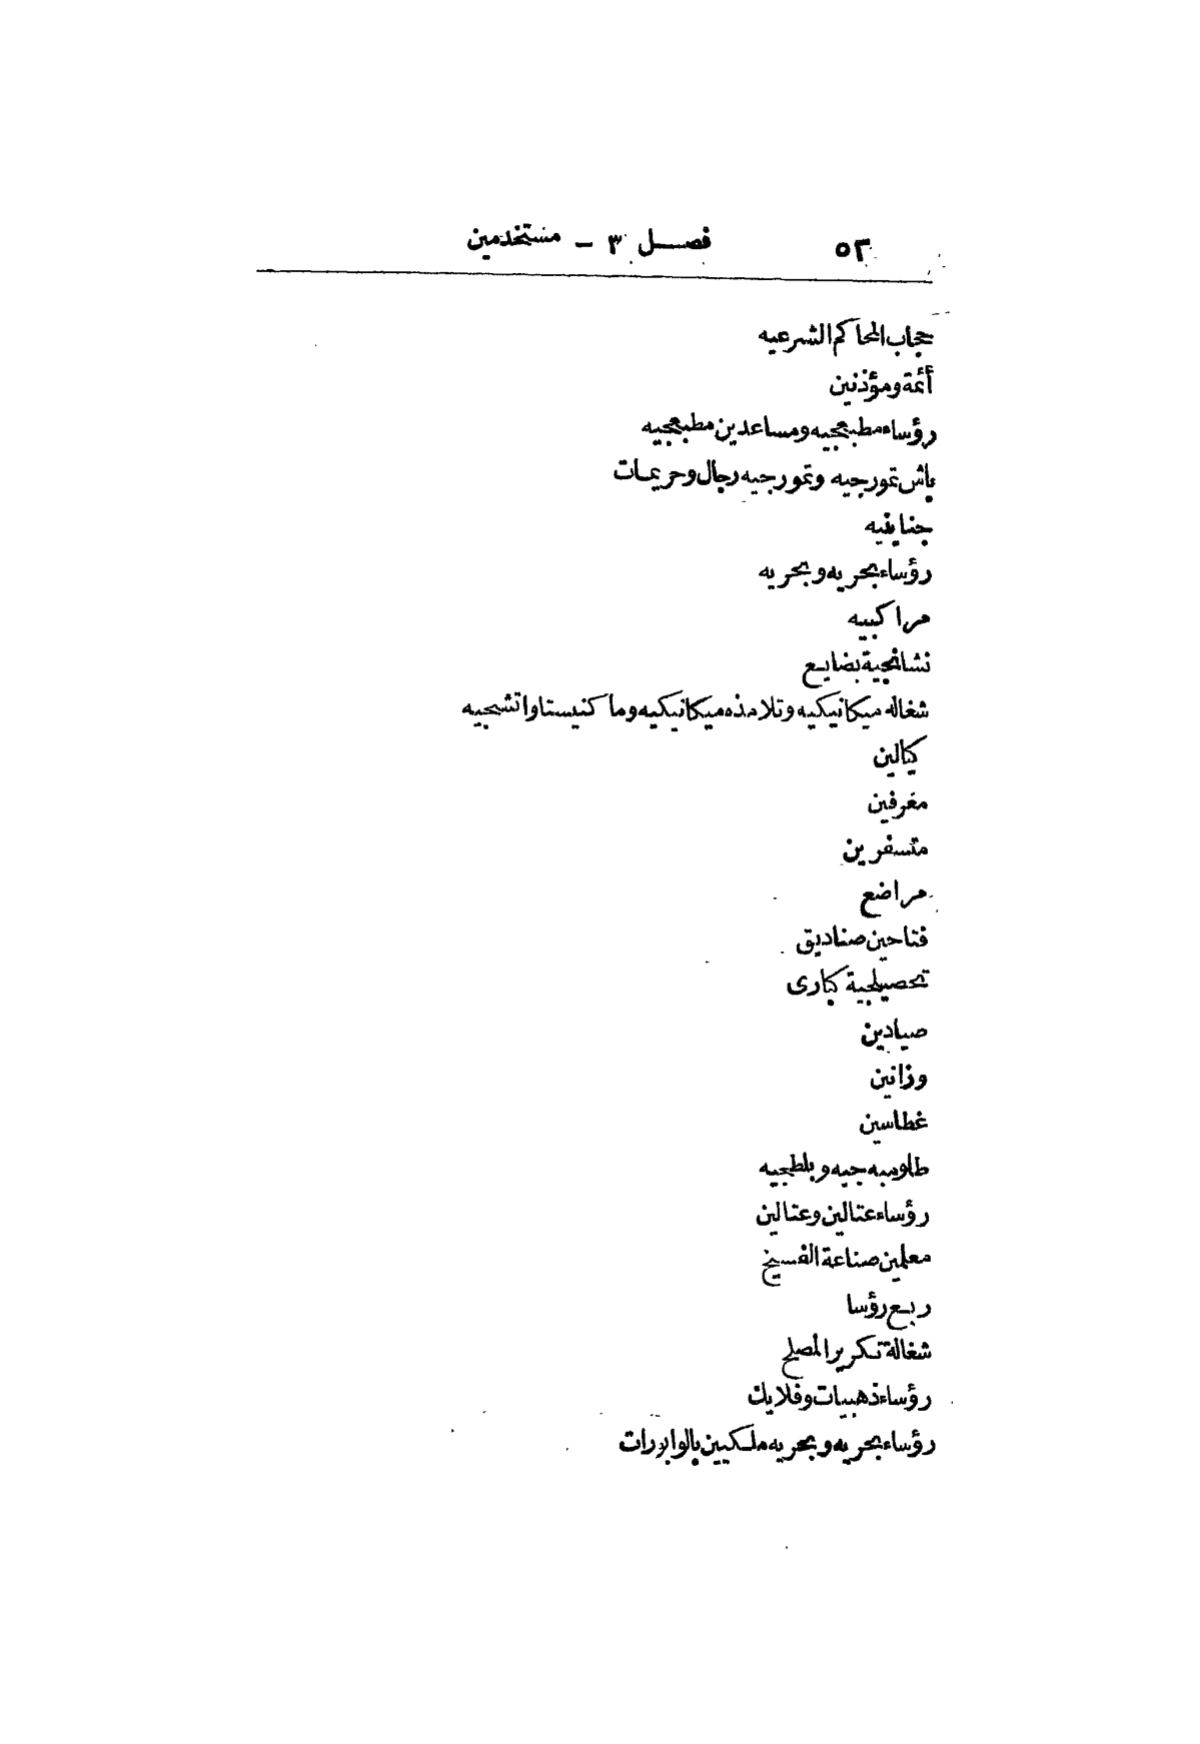 ٥٢ فصل ٣ – مستخدمين
حجاب المحاكم الشرعيه
أئمة ومؤذنين
رؤساء مطبعجيه ومساعدين مطبعجيه
باش تمورجيه وتمورجيه رجال وحريمات
جناينيه
رؤساء بحريه وبحريه
مراكبيه
نشانجية بضايع
شغاله ميكانيكيه وتلامذه ميكانيكيه وماكنيستا واتشجيه
كيالين
مغرفين
متسفرين
مراضع
فتاحين صناديق
تحصيلجية كبارى
صيادين
وزانين
غطاسين
طلومبه جيه وبلطجيه
رؤساء عتالين وعتالين
معلمين صناعة الفسيخ
ربع رؤسا
شغالة تكرير الملح
رؤساء ذهبيات وفلايك
رؤساء بحريه وبحريه ملكيين بالوابورات